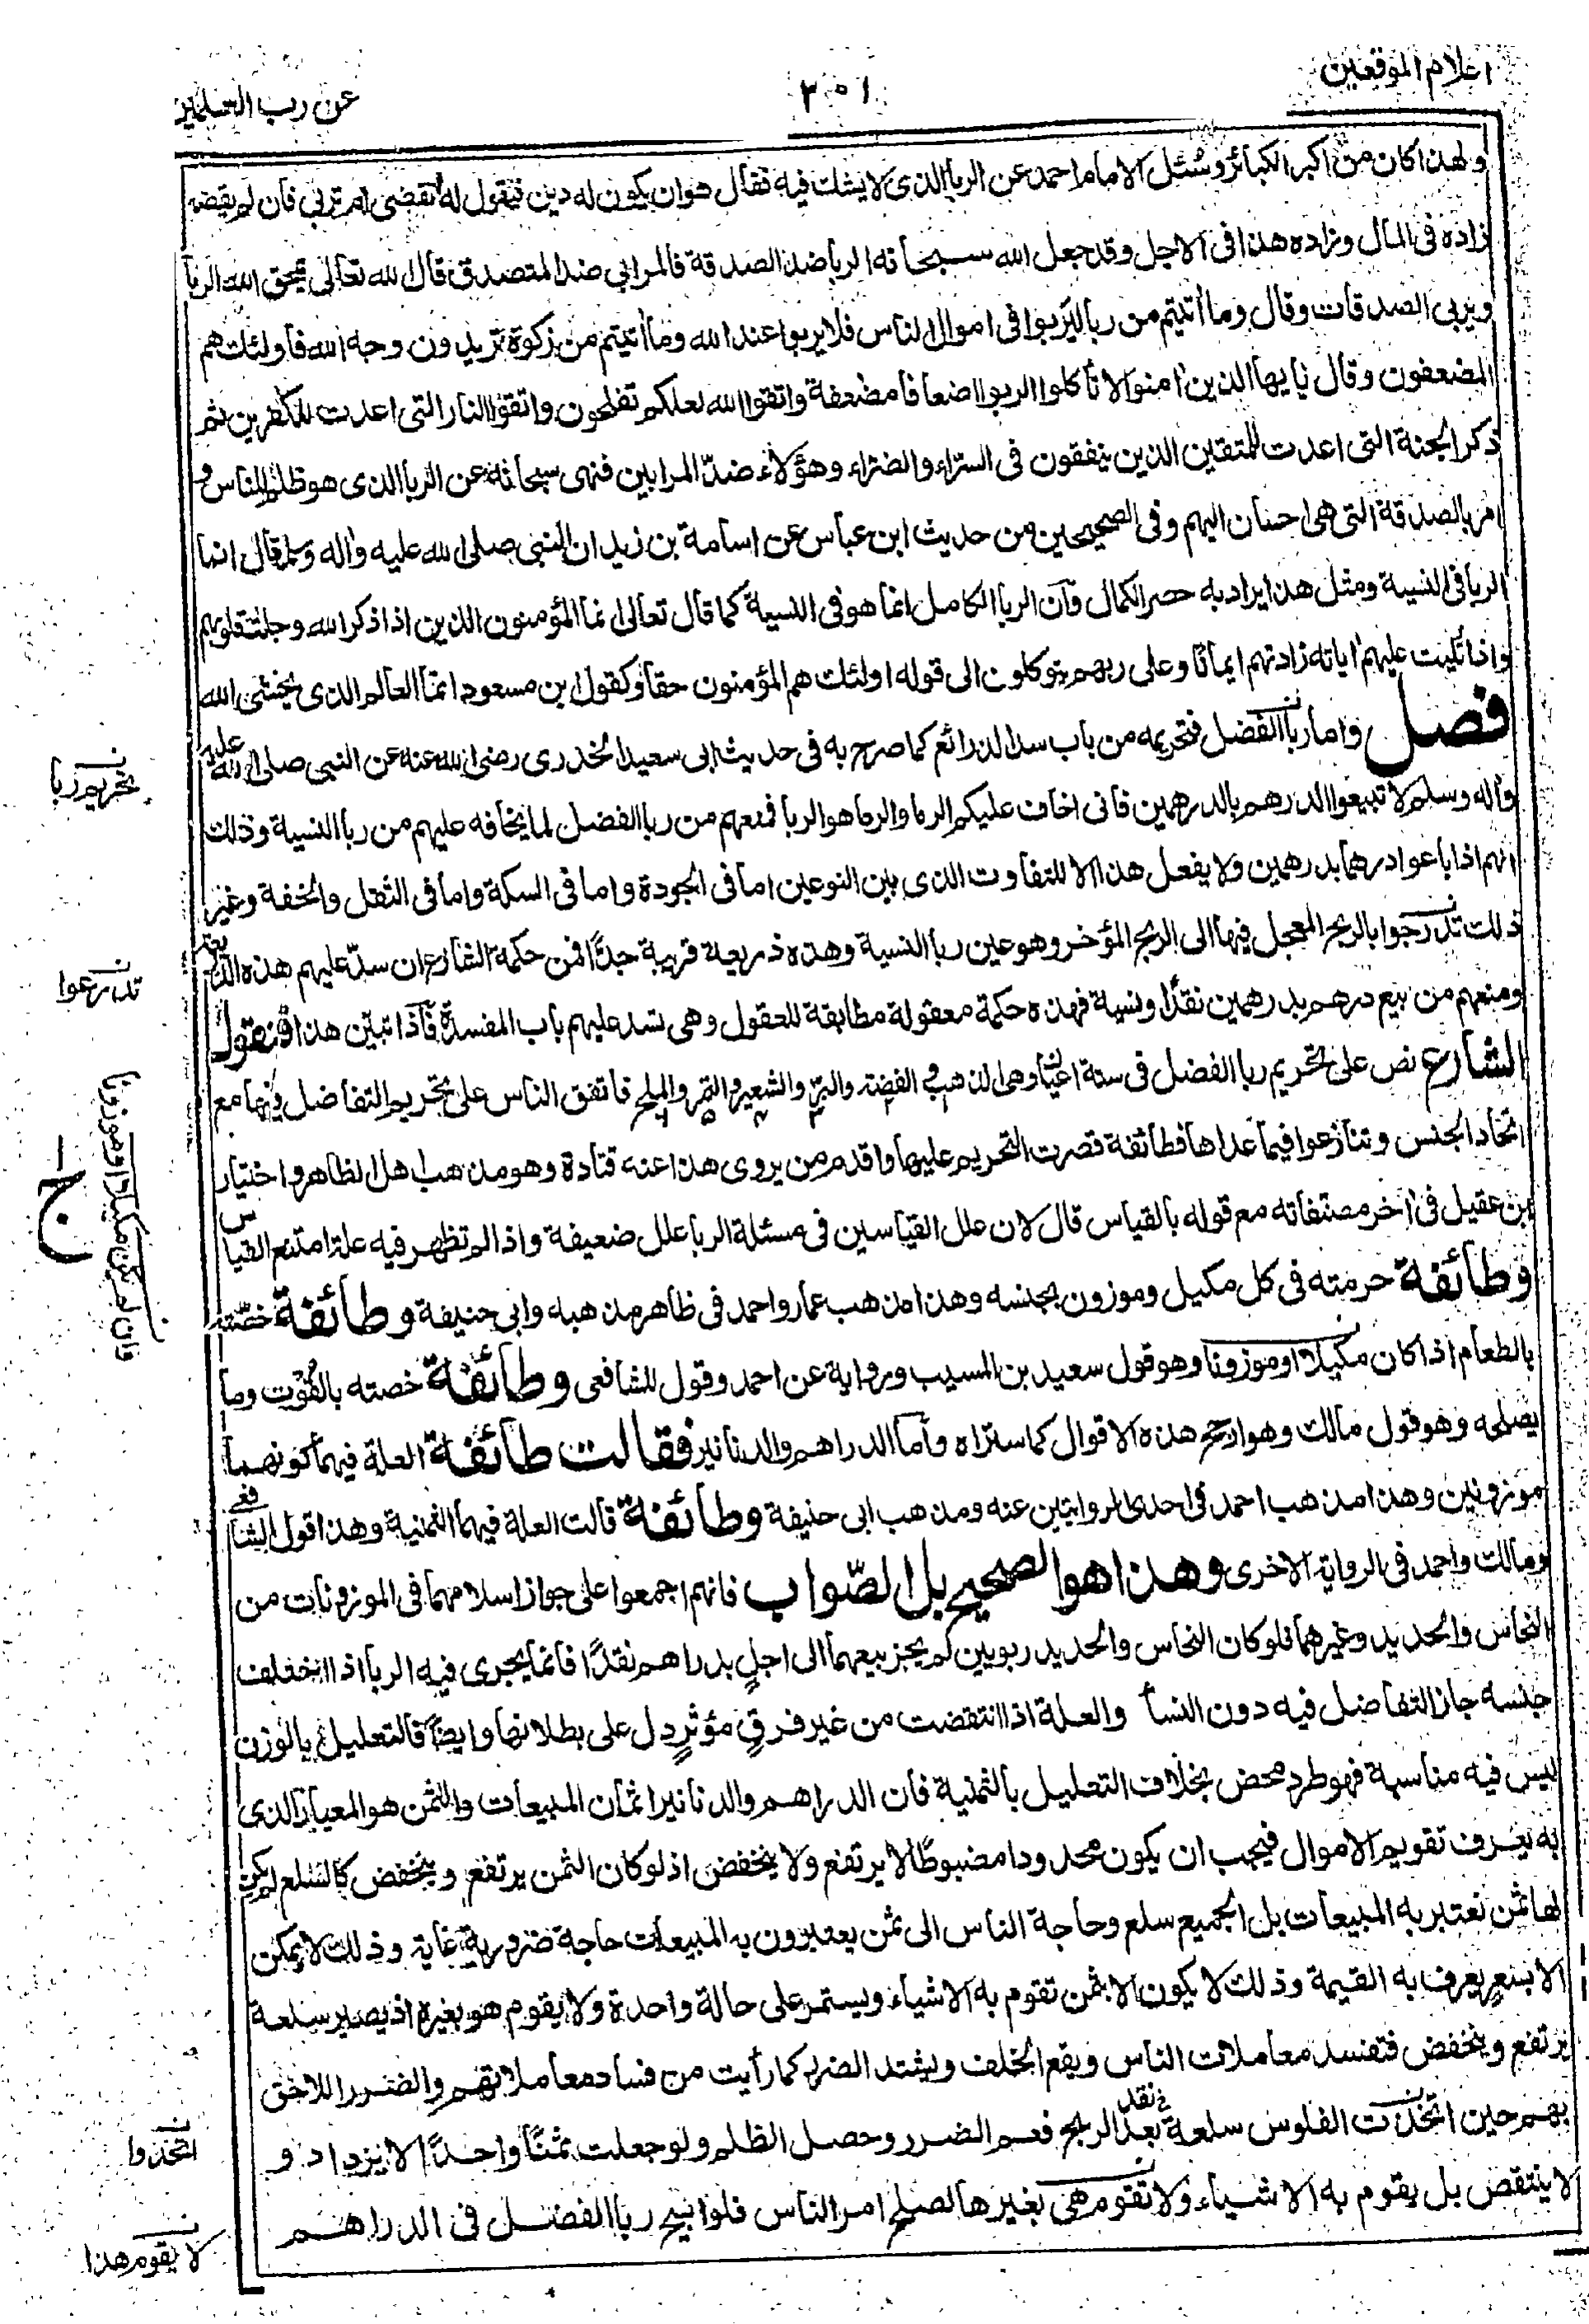 اعلام الموقعين
٣٠١
عن رب العلمين
ولهذا كان من اكبر الكبائر وسُئل الامام احمد عن الربا الذى لا يشك فيه فقال هو ان يكون له دين فيقول له أتقضى ام تربى فان لم يقضه
زاده فى المال وزاده هذا فى الاجل وقد جعل الله سبحانه الربا ضد الصدقة فالمرابى ضد المتصدق قال الله تعالى يمحق الله الربا
ويربى الصدقات وقال وما أتيتم من ربا ليربوا فى اموال الناس فلا يربوا عند الله وما أتيتم من زكوة تريدون وجه الله فاولئك هم
المضعفون وقال يايها الذين امنوا لا تاكلوا الربوا اضعافا مضعفة واتقوا الله لعلكم تفلحون واتقوا النار التى اعدت للكفرين ثم
ذكر الجنة التى اعدت للمتقين الذين ينفقون فى السراء والضراء وهؤلاء ضدّ المرابين فنهى سبحانه عن الربا الذى هو ظلم للناس و
امر بالصدقة التى هى احسان اليهم وفى الصحيحين من حديث ابن عباس عن اسامة بن زيد ان النبى صلى الله عليه واله وسلم قال انما
الربا فى النسية ومثل هذا يراد به حصر الكمال وآن الربا الكامل انما هو فى النسية كما قال تعالى انما المؤمنون الذين اذا ذكر الله وجلت قلوبهم
واذا تليت عليهم اياته زادتهم ايمانا وعلى ربهم يتوكلون الى قوله اولئك هم المؤمنون حقا وكقول ابن مسعود انما العالم الذى يخشى الله
فصل واما ربا الفضل فتحريمه من باب سد الذرائع كما صرح به فى حديث ابى سعيد الخدرى رضى الله عنه عن النبى صلى الله عليه
واله وسلم لا تبيعوا الدرهم بالدرهمين فانى اخاف عليكم الرما والرما هو الربا فمنعهم من ربا الفضل لما يخافه عليهم من ربا النسية وذلك
انهم اذا باعوا درهما بدرهمين ولا يفعل هذا الا للتفاوت الذى بين النوعين اما فى الجودة واما فى السكة واما فى الثقل والخفة وغير
ذلك تدرجوا بالربح المعجل فيها الى الربح المؤخر وهو عين ربا النسية وهذه ذريعة قريبة جدًّا فمن حكمة الشارع ان سدّ عليهم هذه الذريعة
ومنعهم من بيع درهم بدرهمين نقدًا ونسية فهذه حكمة معقولة مطابقة للعقول وهى تسد عليهم باب المفسدة فآذا تبيّن هذا فنقول
الشارع نص على تحريم ربا الفضل فى ستة اعيان وهى الذهب والفضة والبرّ والشعير والتمر والملح فاتفق الناس على تحريم التفاضل فيها مع
اتحاد الجنس وتنازعوا فيما عداها فطائفة قصرت التحريم عليها واقدم من يروى هذا عنه قتادة وهو مذهب اهل الظاهر واختيار
ابن عقيل فى اٰخر مصنفاته مع قوله بالقياس قال لان علل القياسين فى مسئلة الربا علل ضعيفة واذا لم تظهر فيه علة امتنع القياس
وطائفة حرمته فى كل مكيل وموزون بجنسه وهذا مذهب عمار واحمد فى ظاهر مذهبه وابى حنيفة وطائفة خصّته
بالطعام اذا كان مكيلا او موزونا وهو قول سعيد بن المسيب ورواية عن احمد وقول للشافعى وطائفة خصته بالقُوْت وما
يصلحه وهو قول مالك وهو ارجح هذه الاقوال كما ستراه وأما الدراهم والدنانير فقالت طائفة العلة فيهما كونهما
موزونين وهذا مذهب احمد فى احدى الروايتين عنه ومذهب ابى حنيفة وطائفة قالت العلة فيهما الثمنية وهذا قول الشافعى
ومالك واحمد فى الرواية الاخرى وهذا هو الصحيح بل الصّواب فانهم اجمعوا على جواز اسلامهما فى الموزونات من
النحاس والحديد وغيرهما فلو كان النحاس والحديد ربويين لم يجز بيعهما الى اجلٍ بدراهم نقدًا فانما يجرى فيه الربا اذا اختلف
جنسه جاز التفاضل فيه دون النسأ والعلة اذا انتقضت من غير فرقٍ مؤثرٍ دل على بطلانها وايضًا فالتعليل بالوزن
ليس فيه مناسبة فهو طرد محض بخلاف التعليل بالثمنية فان الدراهم والدنانير اثمان المبيعات والثمن هو المعيار الذى
به يعرف تقويم الاموال فيجب ان يكون محدودا مضبوطًا لا يرتفع ولا ينخفض اذ لو كان الثمن يرتفع وينخفض كالسلع لم يكن
لها ثمن نعتبر به المبيعات بل الجميع سلع وحاجة الناس الى ثمن يعتبرون به المبيعات حاجة ضرورية غاية وذلك لا يمكن
الا بسعرٍ يعرف به القيمة وذلك لا يكون الا بثمن تقوم به الاشياء ويستمر على حالة واحدة ولا يقوم هو بغيره اذ يصير سلعة
يرتفع وينخفض فتفسد معاملات الناس ويقع الخلف ويشتد الضرر كما رأيت من فساد معاملاتهم والضرر اللاحق
بهم حين اتخذت الفلوس سلعة بعد الربح فعم الضرر وحصل الظلم ولو جعلت ثمنًا واحدًا لا يزداد و
لا ينتقص بل يقوم به الاشياء ولا تقوم هى بغيرها لصلح امر الناس فلو ابيح ربا الفضل فى الدراهم
تحريم ربا
تدرعوا
فان لم يكن مكيلا او موزونا
ج
اتخذوا
لا يقوم هذا